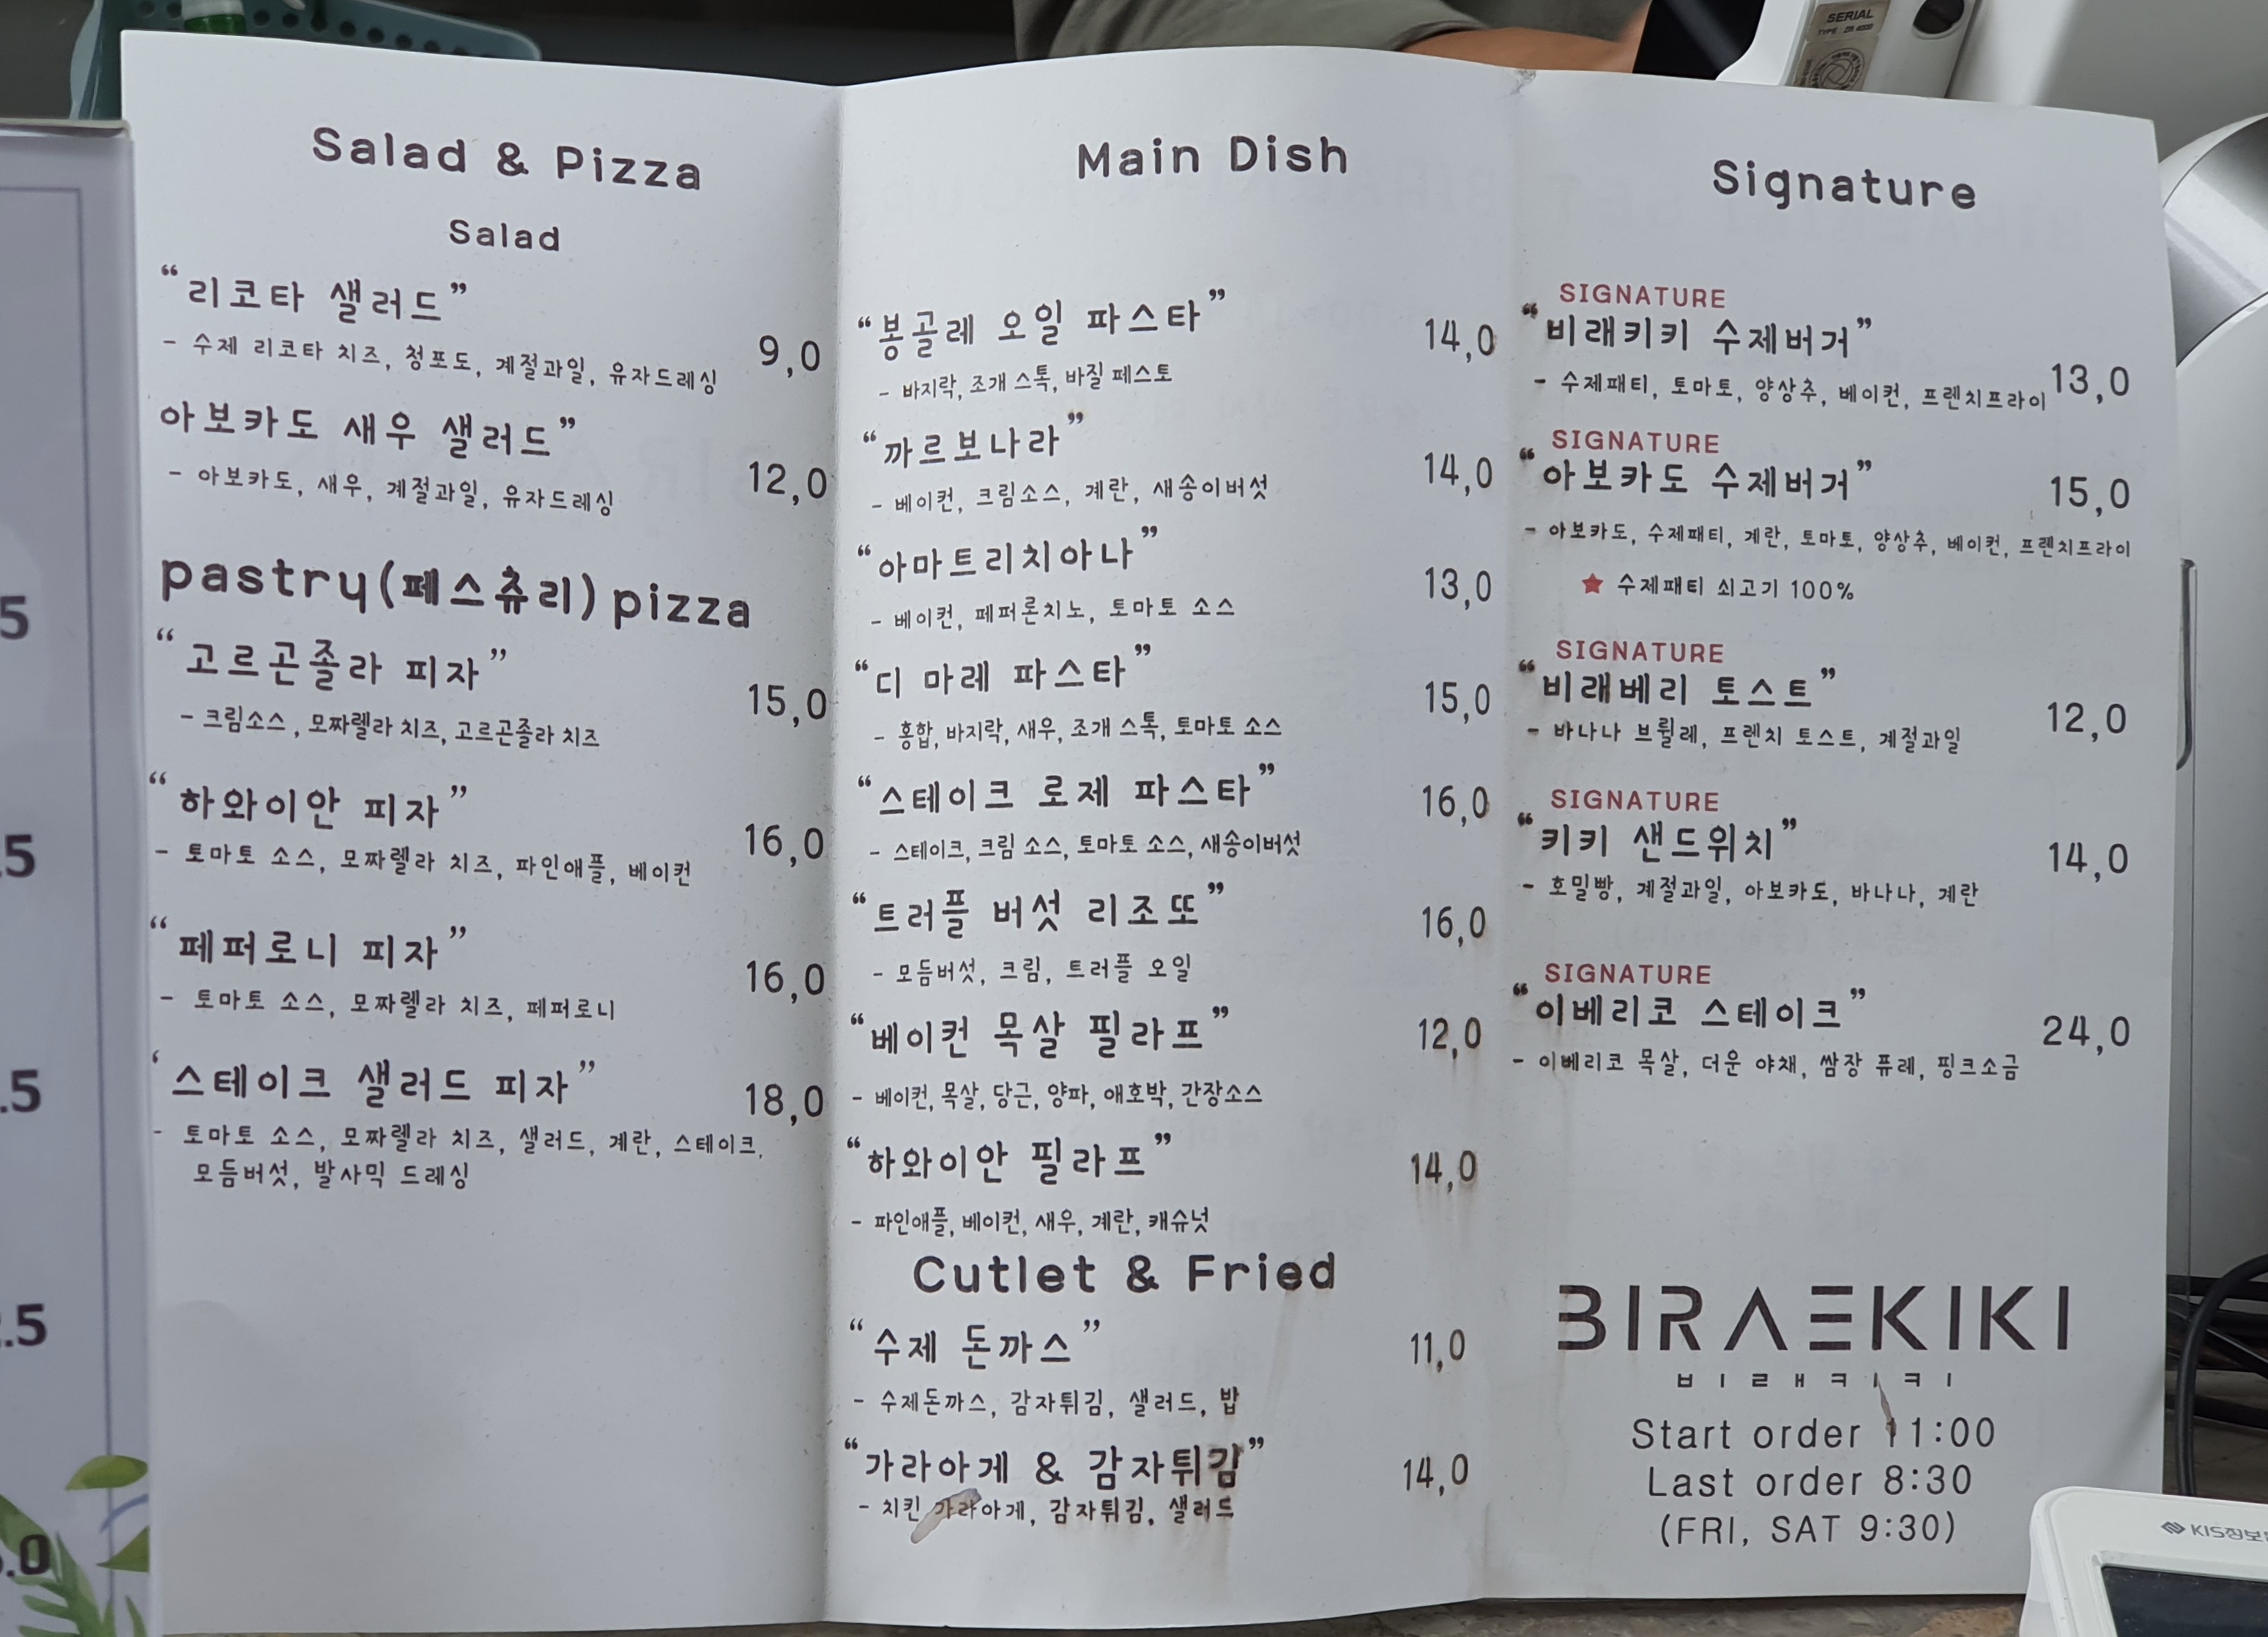 Salad & Pizza
Salad
“리코타 샐러드”
- 수제 리코타 치즈, 청포도, 계절과일, 유자드레싱
9,0
아보카도 새우 샐러드”
- 아보카도, 새우, 계절과일, 유자드레싱
12,0
pastry(페스츄리)pizza
“고르곤졸라 피자”
- 크림소스, 모짜렐라 치즈, 고르곤졸라 치즈
15,0
“하와이안 피자”
- 토마토 소스, 모짜렐라 치즈, 파인애플, 베이컨
16,0
“페퍼로니 피자”
- 토마토 소스, 모짜렐라 치즈, 페퍼로니
16,0
‘스테이크 샐러드 피자”
18,0
- 토마토 소스, 모짜렐라 치즈, 샐러드, 계란, 스테이크,
모듬버섯, 발사믹 드레싱
Main Dish
“봉골레 오일 파스타”
14,0
- 바지락, 조개 스톡, 바질 페스토
“까르보나라”
14,0
- 베이컨, 크림소스, 계란, 새송이버섯
“아마트리치아나”
13,0
- 베이컨, 페퍼론치노, 토마토 소스
“디 마레 파스타”
15,0
- 홍합, 바지락, 새우, 조개 스톡, 토마토 소스
“스테이크 로제 파스타”
16,0
- 스테이크, 크림 소스, 토마토 소스, 새송이버섯
“트러플 버섯 리조또”
16,0
- 모듬버섯, 크림, 트러플 오일
“베이컨 목살 필라프”
12,0
- 베이컨, 목살, 당근, 양파, 애호박, 간장소스
“하와이안 필라프”
14,0
- 파인애플, 베이컨, 새우, 계란, 캐슈넛
Cutlet & Fried
“수제 돈까스”
11,0
- 수제돈까스, 감자튀김, 샐러드, 밥
“가라아게 & 감자튀김”
14,0
- 치킨 가라아게, 감자튀김, 샐러드
Signature
SIGNATURE
“비래키키 수제버거”
13,0
- 수제패티, 토마토, 양상추, 베이컨, 프렌치프라이
SIGNATURE
“아보카도 수제버거”
15,0
- 아보카도, 수제패티, 계란, 토마토, 양상추, 베이컨, 프렌치프라이
★ 수제패티 쇠고기 100%
SIGNATURE
“비래베리 토스트”
12,0
- 바나나 브륄레, 프렌치 토스트, 계절과일
SIGNATURE
“키키 샌드위치”
14,0
- 호밀빵, 계절과일, 아보카도, 바나나, 계란
SIGNATURE
“이베리코 스테이크”
24,0
- 이베리코 목살, 더운 야채, 쌈장 퓨레, 핑크소금
BIRAEKIKI
ㅂㅣㄹㅐㅋㅣㅋㅣ
Start order 11:00
Last order 8:30
(FRI, SAT 9:30)
SERIAL
KIS정보
5
.5
.5
.5
.0